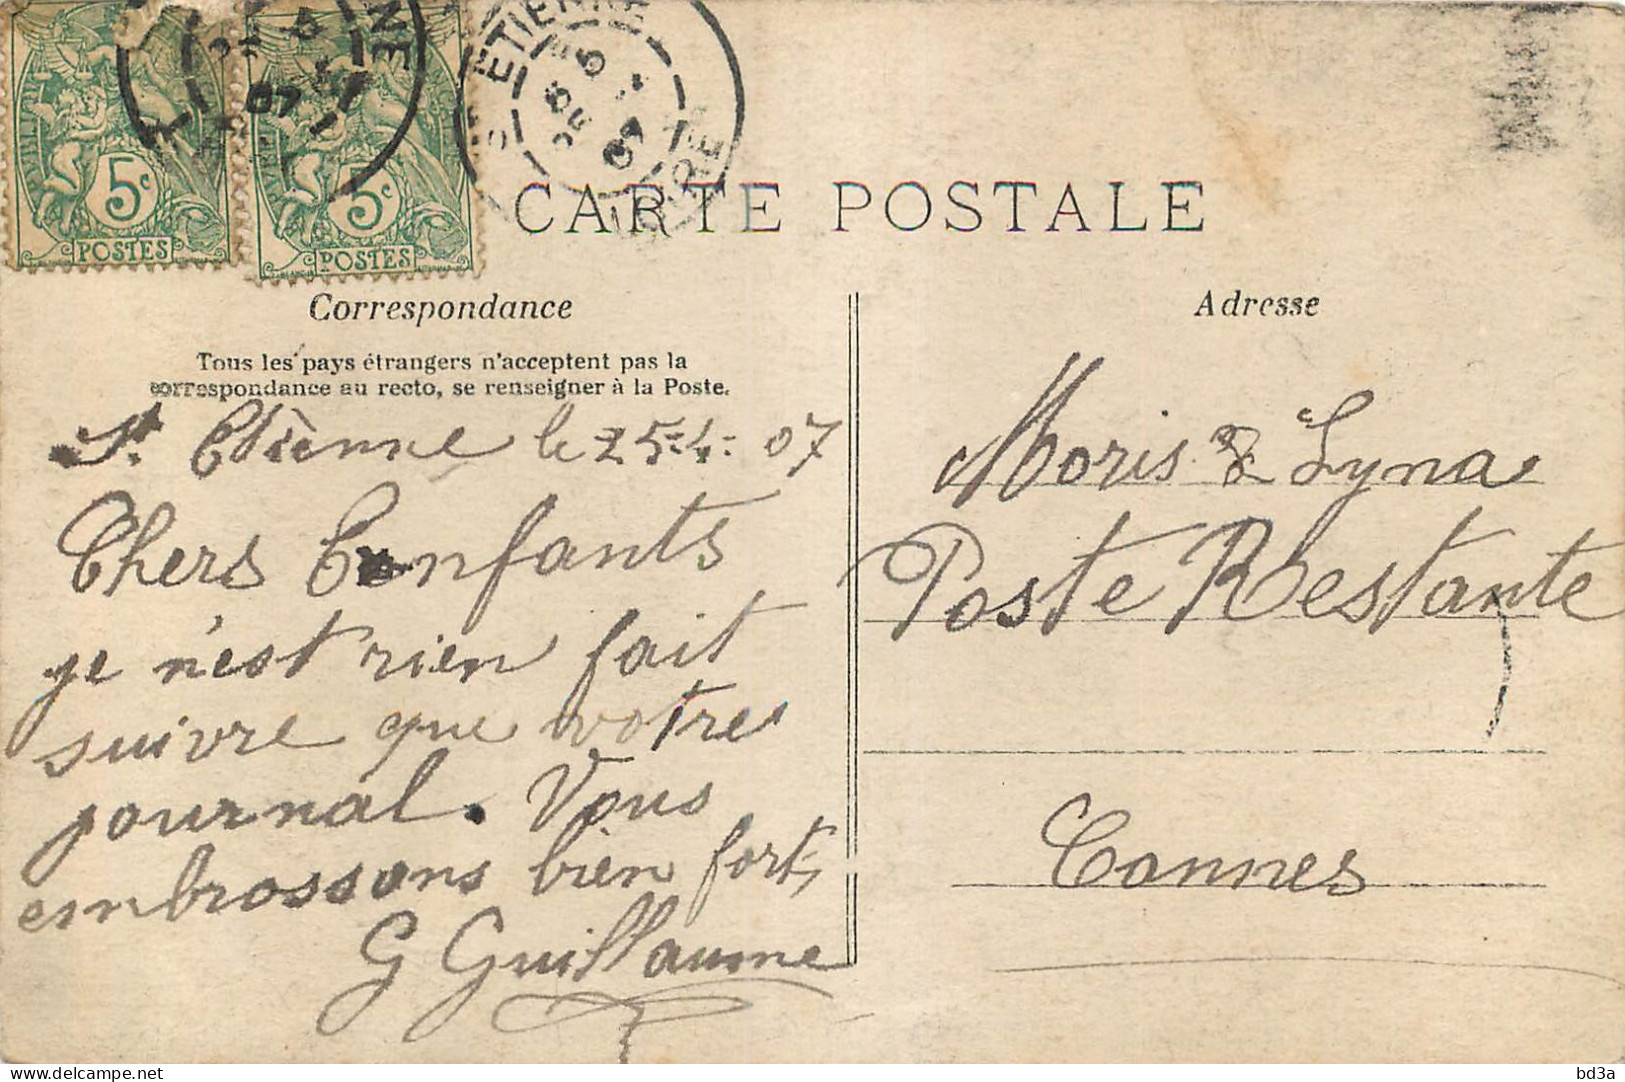 5c
POSTES
5c
POSTES
NE
07
ST ETIENNE
LOIRE
07
CARTE POSTALE
Correspondance
Adresse
Tous les pays étrangers n'acceptent pas la
correspondance au recto, se renseigner à la Poste.
St Etienne le 25-4-07
Chers Enfants
je n'est rien fait
suivre que votres
journal. Vous
embrossons bien fort,
G Guillaume
Moris & Lyna
Poste Restante
Cannes
delcampe.net
bd3a